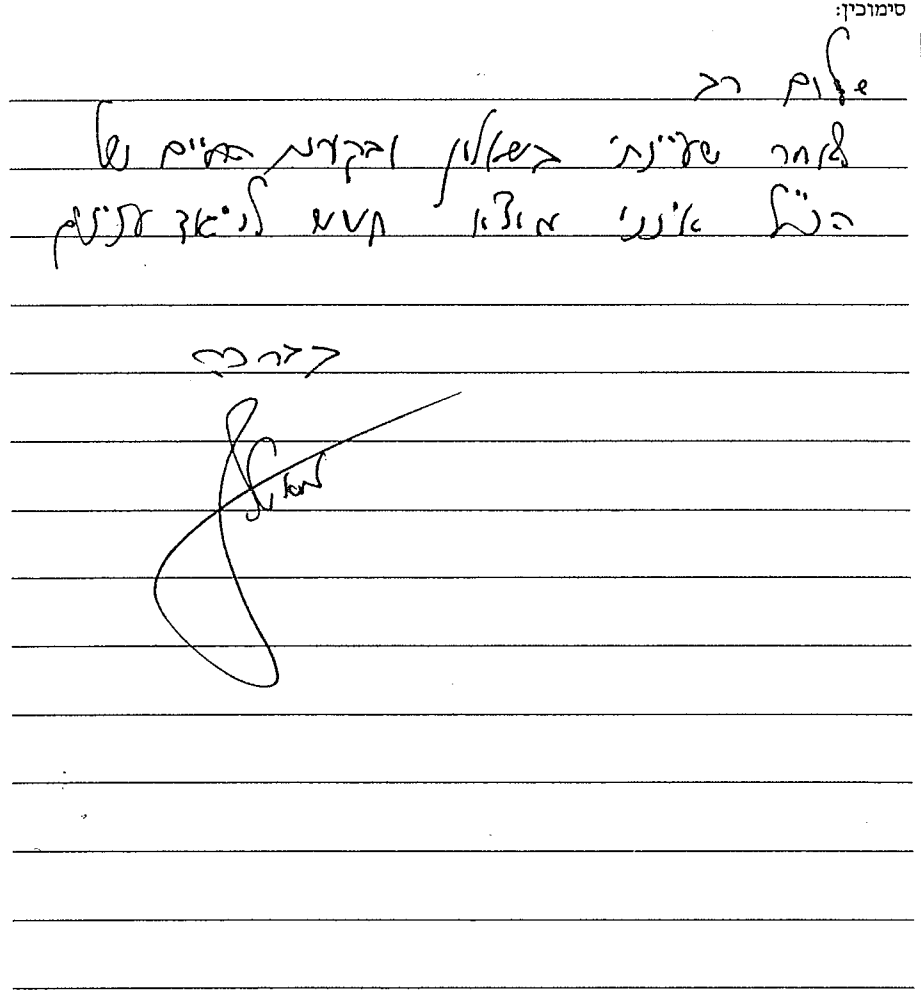 סימוכין:
שלום רב
לאחר שעיינתי בשאלון ובקורות החיים של
הנ"ל אינני מוצא חשש לניגוד עניינים
בברכה